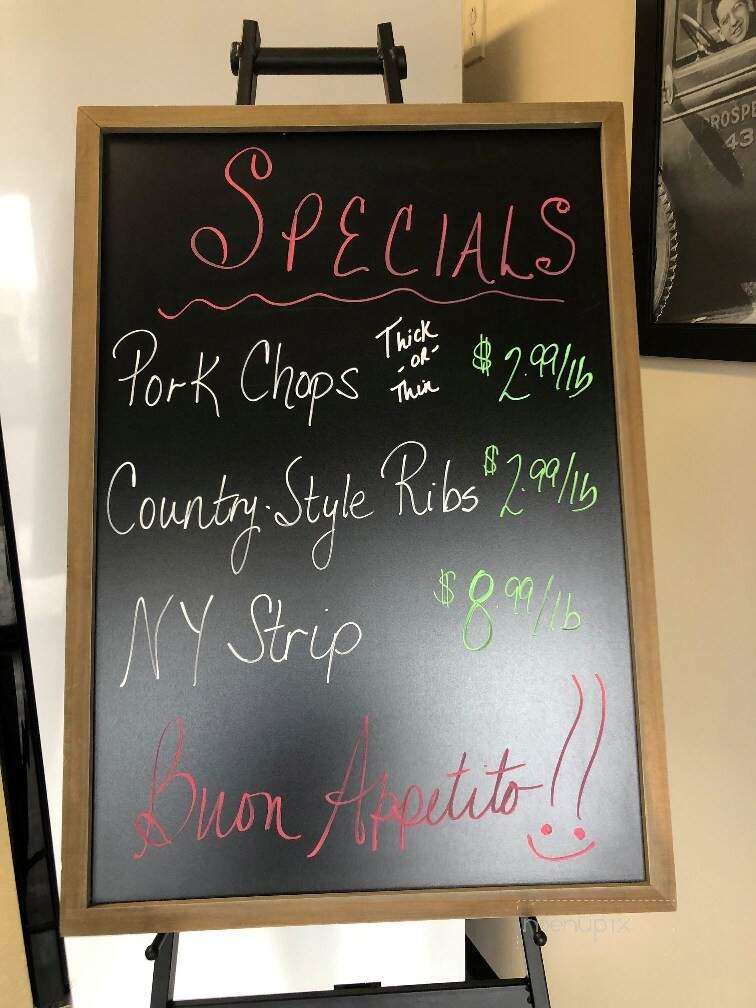 SPECIALS
Pork Chops Thick -OR- Thin $2.99/lb
Country-Style Ribs $2.99/lb
NY Strip $8.99/lb
Buon Appetito!!
PROSPE
43
menupix